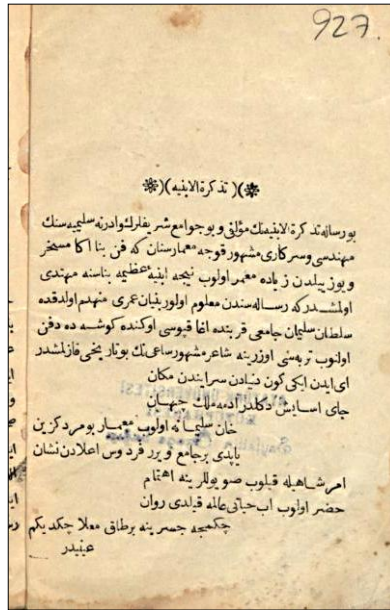 927
❋)( تذكرة الابنيه )(❋
بو رساله تذكرة الابنيه نك مؤلفى و بو جوامع شريفلرك وادرنه سليميه سنك
مهندسى و سركارى مشهور قوجه معمار سنان كه فن بنا اكا مسخر
و يوز ييلدن زياده معمر اولوب نيجه ابنيه عظيمه بناسنه مهندى
اولمشدر كه رساله سندن معلوم اولور بنيان عمرى منهدم اولدقده
سلطان سليمان جامعى قربنده اغا قپوسى اوكنده كوشه ده دفن
اولنوب تربه سى اوزرينه شاعر مشهور ساعى نك بو تاريخى قازلمشدر
اى ايدن ايكى كون دنيادن سراينده مكان
جاى اسايش دكلدر ادمه ملك جهان
خان سليمانه اولوب معمار بو مرد كزين
ياپدى بر جامع ويرر فردوس اعلادن نشان
امر شاهيله قيلوب صو يوللرينه اهتمام
حضر اولوب اب حياتى عالمه قيلدى روان
چكمجه جسرينه بر طاق معلا چكدى كم
عينيدر